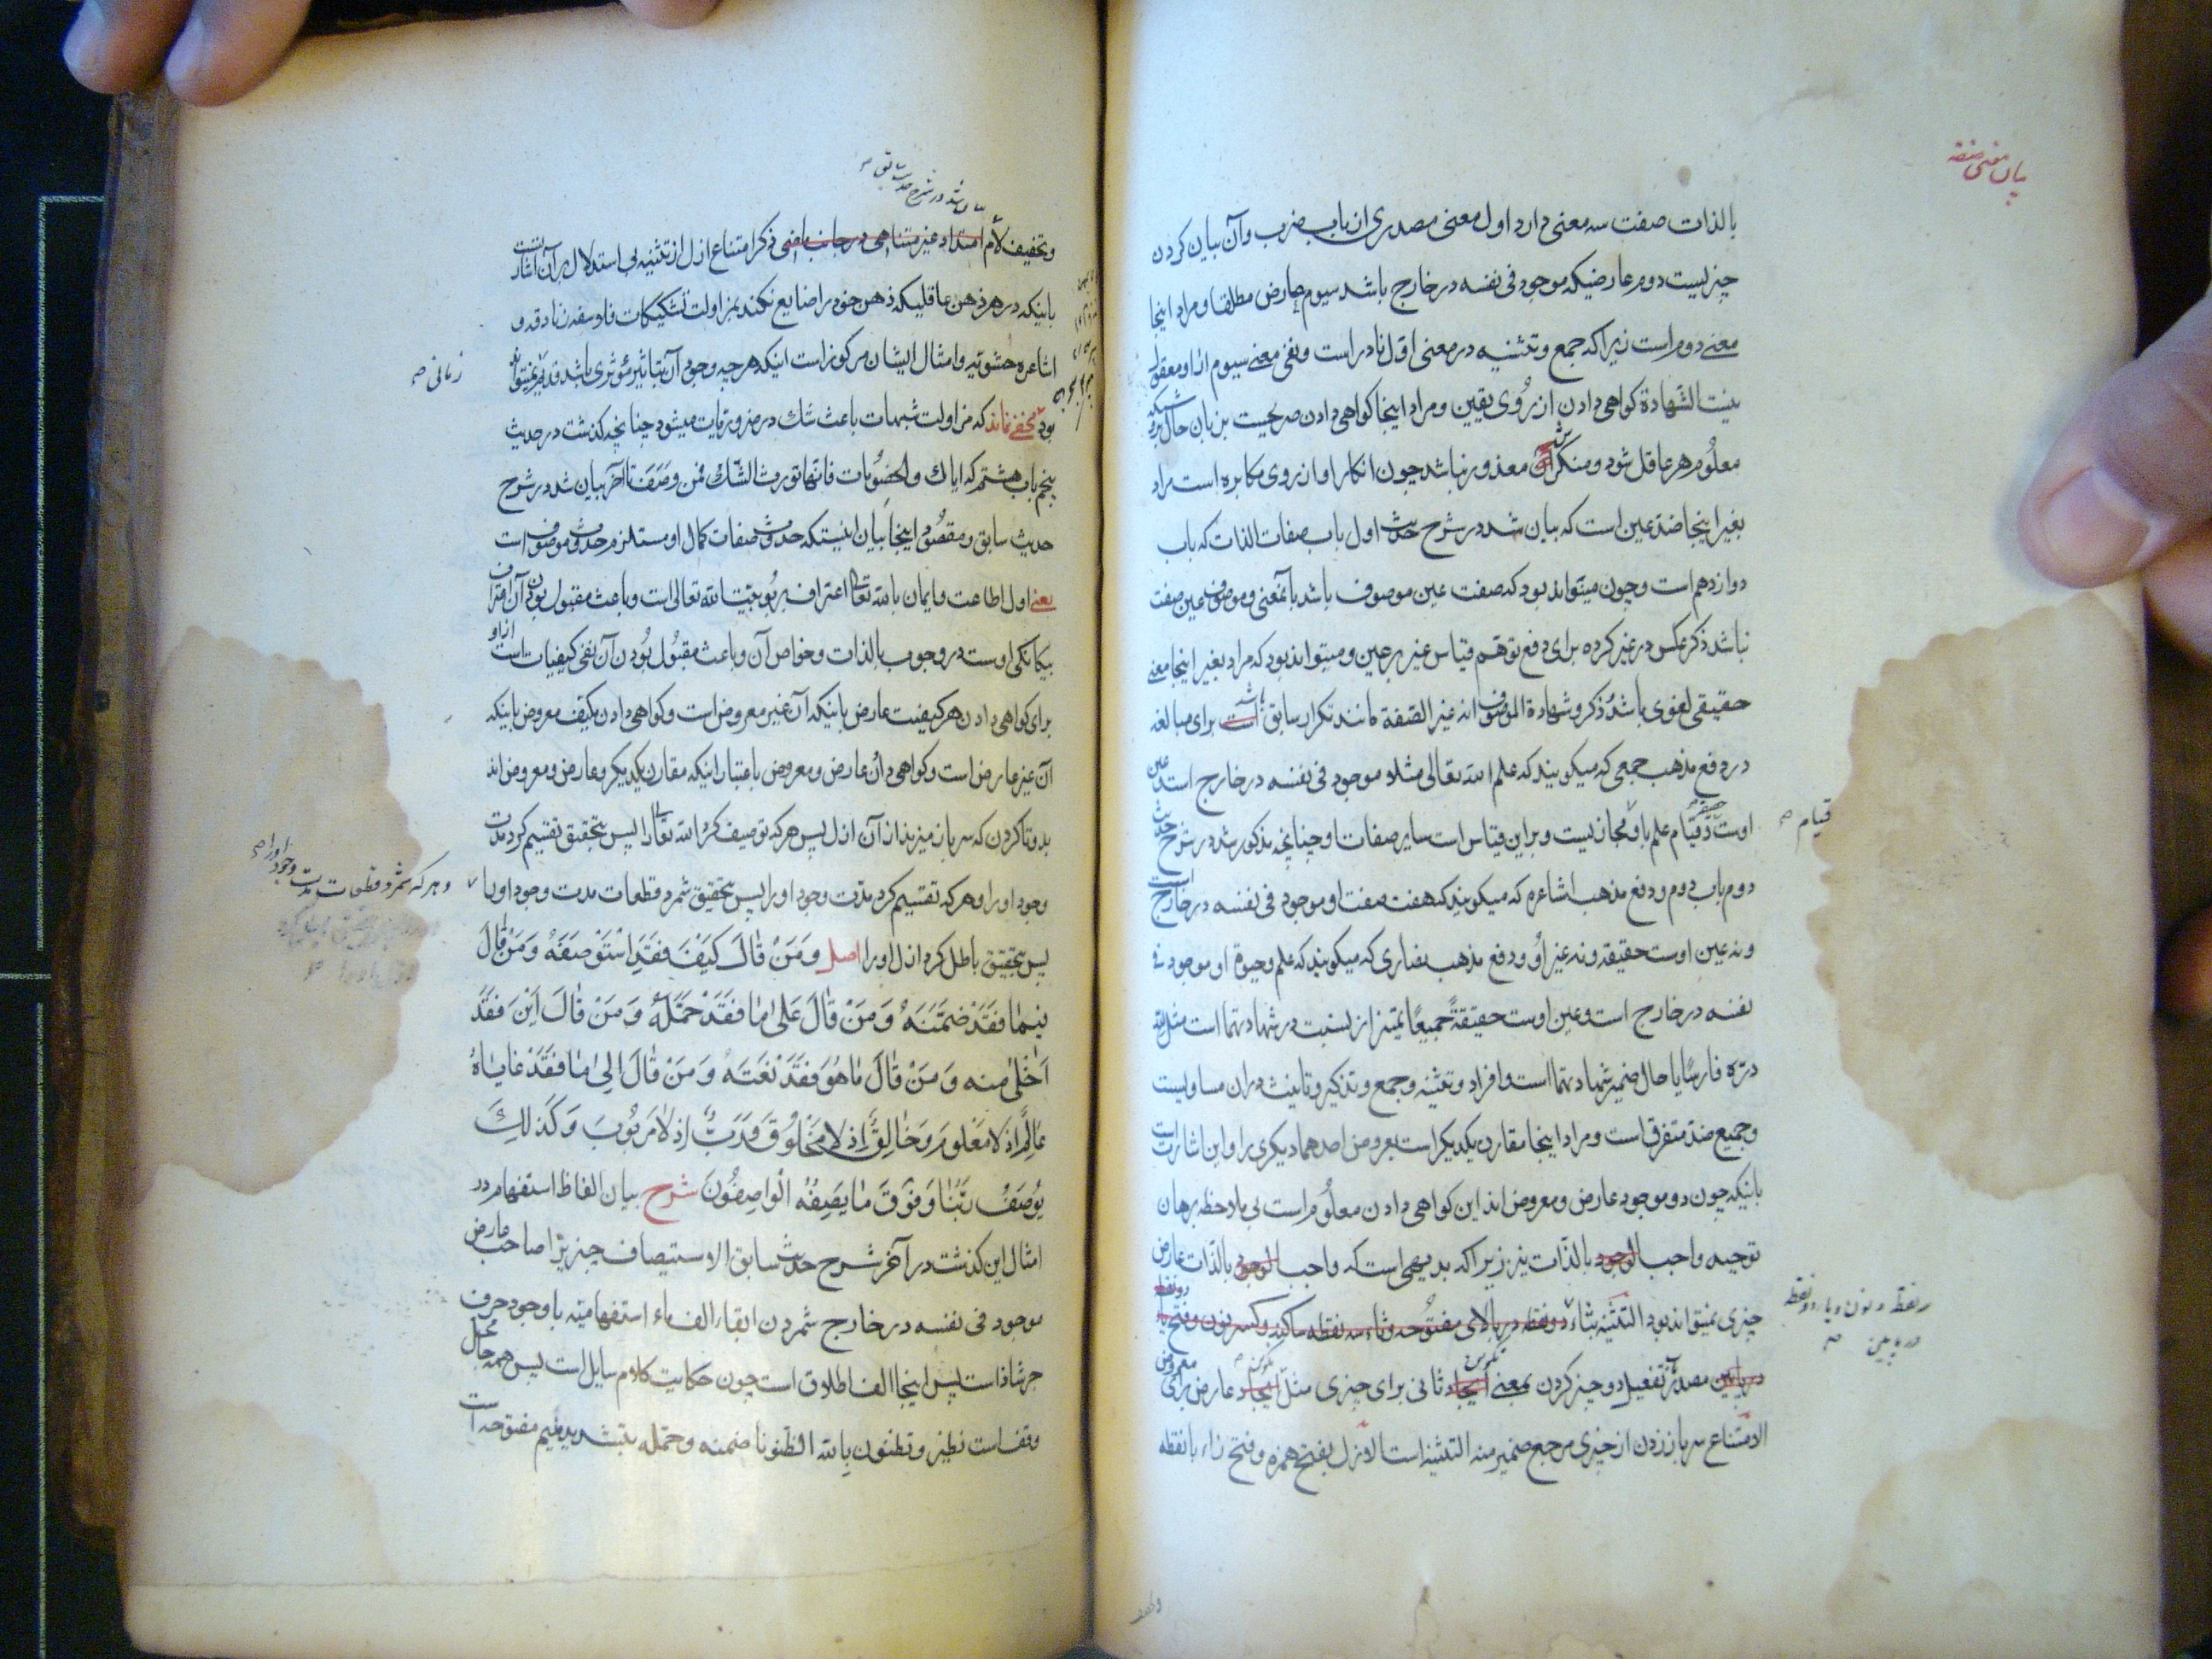 بیان معنی صفة
بالذات صفت سه معنی دارد اول معنی مصدری از باب ضرب و آن بیان کردن
چیزیست دوم عارضیکه موجود فی نفسه در خارج باشد سیوم عارض مطلقا و مراد اینجا
معنی دوم است زیرا که جمع و تثنیه در معنی اول نادر است و نفی معنی سیوم از او معقول
نیست الشهادة کواهی دادن از روی یقین و مراد اینجا کواهی دادن صریحیست بزبان حال بروشیکه
معلوم هر عاقل شود و منکرش معذور نباشد چون انکار او از روی مکابره است مراد
بغیر اینجا ضد عین است که بیان شد در شرح حدیث اول باب صفات الذات که باب
دوازدهم است و چون میتواند بود که صفت عین موصوف باشد بآنمعنی و موصوف عین صفت
نباشد ذکر عکس در غیر کرده برای دفع توهم قیاس غیر بر عین و میتواند بود که مراد بغیر اینجا معنی
حقیقی لغوی باشد و ذکر و شهادة الموصوف انه غیر الصفة مانند تکرار سابق باشد برای مبالغه
در دفع مذهب جمعی که میکویند که علم الله تعالی مثلا موجود فی نفسه در خارج است و عین
اوست حقیقة و قیام علم باو مجازیست و براین قیاس است سایر صفات او چنانچه مذکور شد در شرح حدیث
قیام صح
دوم باب دوم و دفع مذهب اشاعره که میکویند که هفت صفت او موجود فی نفسه در خارج است
و نه عین اوست حقیقة و نه غیر او و دفع مذهب نصاری که میکویند که علم و حیوة او موجود فی
نفسه در خارج است و عین اوست حقیقةً جمیعًا تمیز از نسبت در شهادتهما است مثل لله
درّه فارسًا یا حال ضمیر شهادتهما است و افراد و تثنیه و جمع و تذکیر و تانیث در آن مساویست
و جمیع ضد متفرق است و مراد اینجا مقارن یکدیکر است بعروض احدهما دیکری را و این اشارت است
باینکه چون دو موجود عارض و معروض اند این کواهی دادن معلوم است بی ملاحظه برهان
توحید واجب الوجود بالذات نیز زیرا که بدیهی است که واجب الوجود بالذات عارض
چیزی نمیتواند بود التثنیه بثاء دو نقطه در بالای مفتوحه و ثاء سه نقطه ساکنه و کسر نون و فتح یاء دو نقطه
در پایین مصدر باب تفعیل دو چیز کردن بمعنی ایجاد ثانی برای چیزی مثل ایجاد عارض برای معروض
الامتناع سر باز زدن از چیزی مرجع ضمیر منه التثنیه است الازل بفتح همزه و فتح زاء با نقطه
و تخفیف لام امتداد غیر متناهی در جانب ماضی ذکر امتناع ازل از تثنیه بی استدلال بر آن اشارتست
باینکه در هر ذهن عاقلیکه ذهن خود را ضایع نکند بمزاولت تشکیکات فلاسفه زنادقه و
اشاعره حشویه و امثال ایشان مرکوز است اینکه هر چه وجود آن بتاثیر مؤثری باشد قدیم نمیتواند
زمانی صح
بود مخفی نماند که مزاولت شبهات باعث شك در ضروریات میشود چنانچه کذشت در حدیث
پنجم باب هشتم که ایاك و الخصومات فانها تورث الشك فمن وصف تا آخر بیان شد در شرح
حدیث سابق و مقصود اینجا بیان اینستکه حدوث صفات کمال او مستلزم حدوث موصوف است
یعنی اول اطاعت و ایمان بالله تعالی اعتراف بربوبیت الله تعالی است و باعث مقبول بودن آن اعتراف
بیکانکی اوست در وجوب بالذات و خواص آن و باعث مقبول بودن آن نفی کیفیات است از او
برای کواهی دادن هر کیفیت عارض باینکه آن غیر معروض است و کواهی دادن مکیف معروض باینکه
آن غیر عارض است و کواهی دادن عارض و معروض باعتبار اینکه مقارن یکدیکر و عارض و معروض اند
بدوتا کردن که سر باز میزند از آن ازل پس هر که توصیف کرد الله تعالی را پس بتحقیق تقسیم کرد مدت
وجود او را و هر که تقسیم کرد مدت وجود او را پس بتحقیق شمرد قطعات مدت وجود او را
و هر که شمرد قطعات مدت وجود او را صح
پس بتحقیق باطل کرد ازل او را اصل وَ مَنْ قالَ کَیْفَ فَقَدِ اسْتَوْصَفَهُ وَ مَنْ قالَ
فیما فَقَدْ ضَمَّنَهُ وَ مَنْ قالَ عَلی ما فَقَدْ حَمَّلَهُ وَ مَنْ قالَ اَیْنَ فَقَدْ
اَخْلی مِنه وَ مَنْ قالَ ما هُوَ فَقَدْ نَعَتَهُ وَ مَنْ قالَ اِلی ما فَقَدْ غایاهُ
عالِمٌ اِذْ لا مَعْلومَ وَ خالِقٌ اِذ لا مَخْلُوقَ وَ رَبٌّ اِذ لا مَرْبُوبَ وَ کَذلِكَ
یُوصَفُ رَبُّنا وَ فَوْقَ ما یَصِفُهُ الْواصِفُونَ شرح بیان الفاظ استفهام در
امثال این کذشت در آخر شرح حدیث سابق الاستیصاف چیزیرا صاحب عارض
موجود فی نفسه در خارج شمردن ابقاء الف ماء استفهامیه با وجود حرف
جر شاذ است پس اینجا الف اطلاق است چون حکایت کلام سایل است پس همه جا محل
وقف است نظیر و تظنون بالله الظنونا ضمنه و حمّله بتشدید میم مفتوحه است